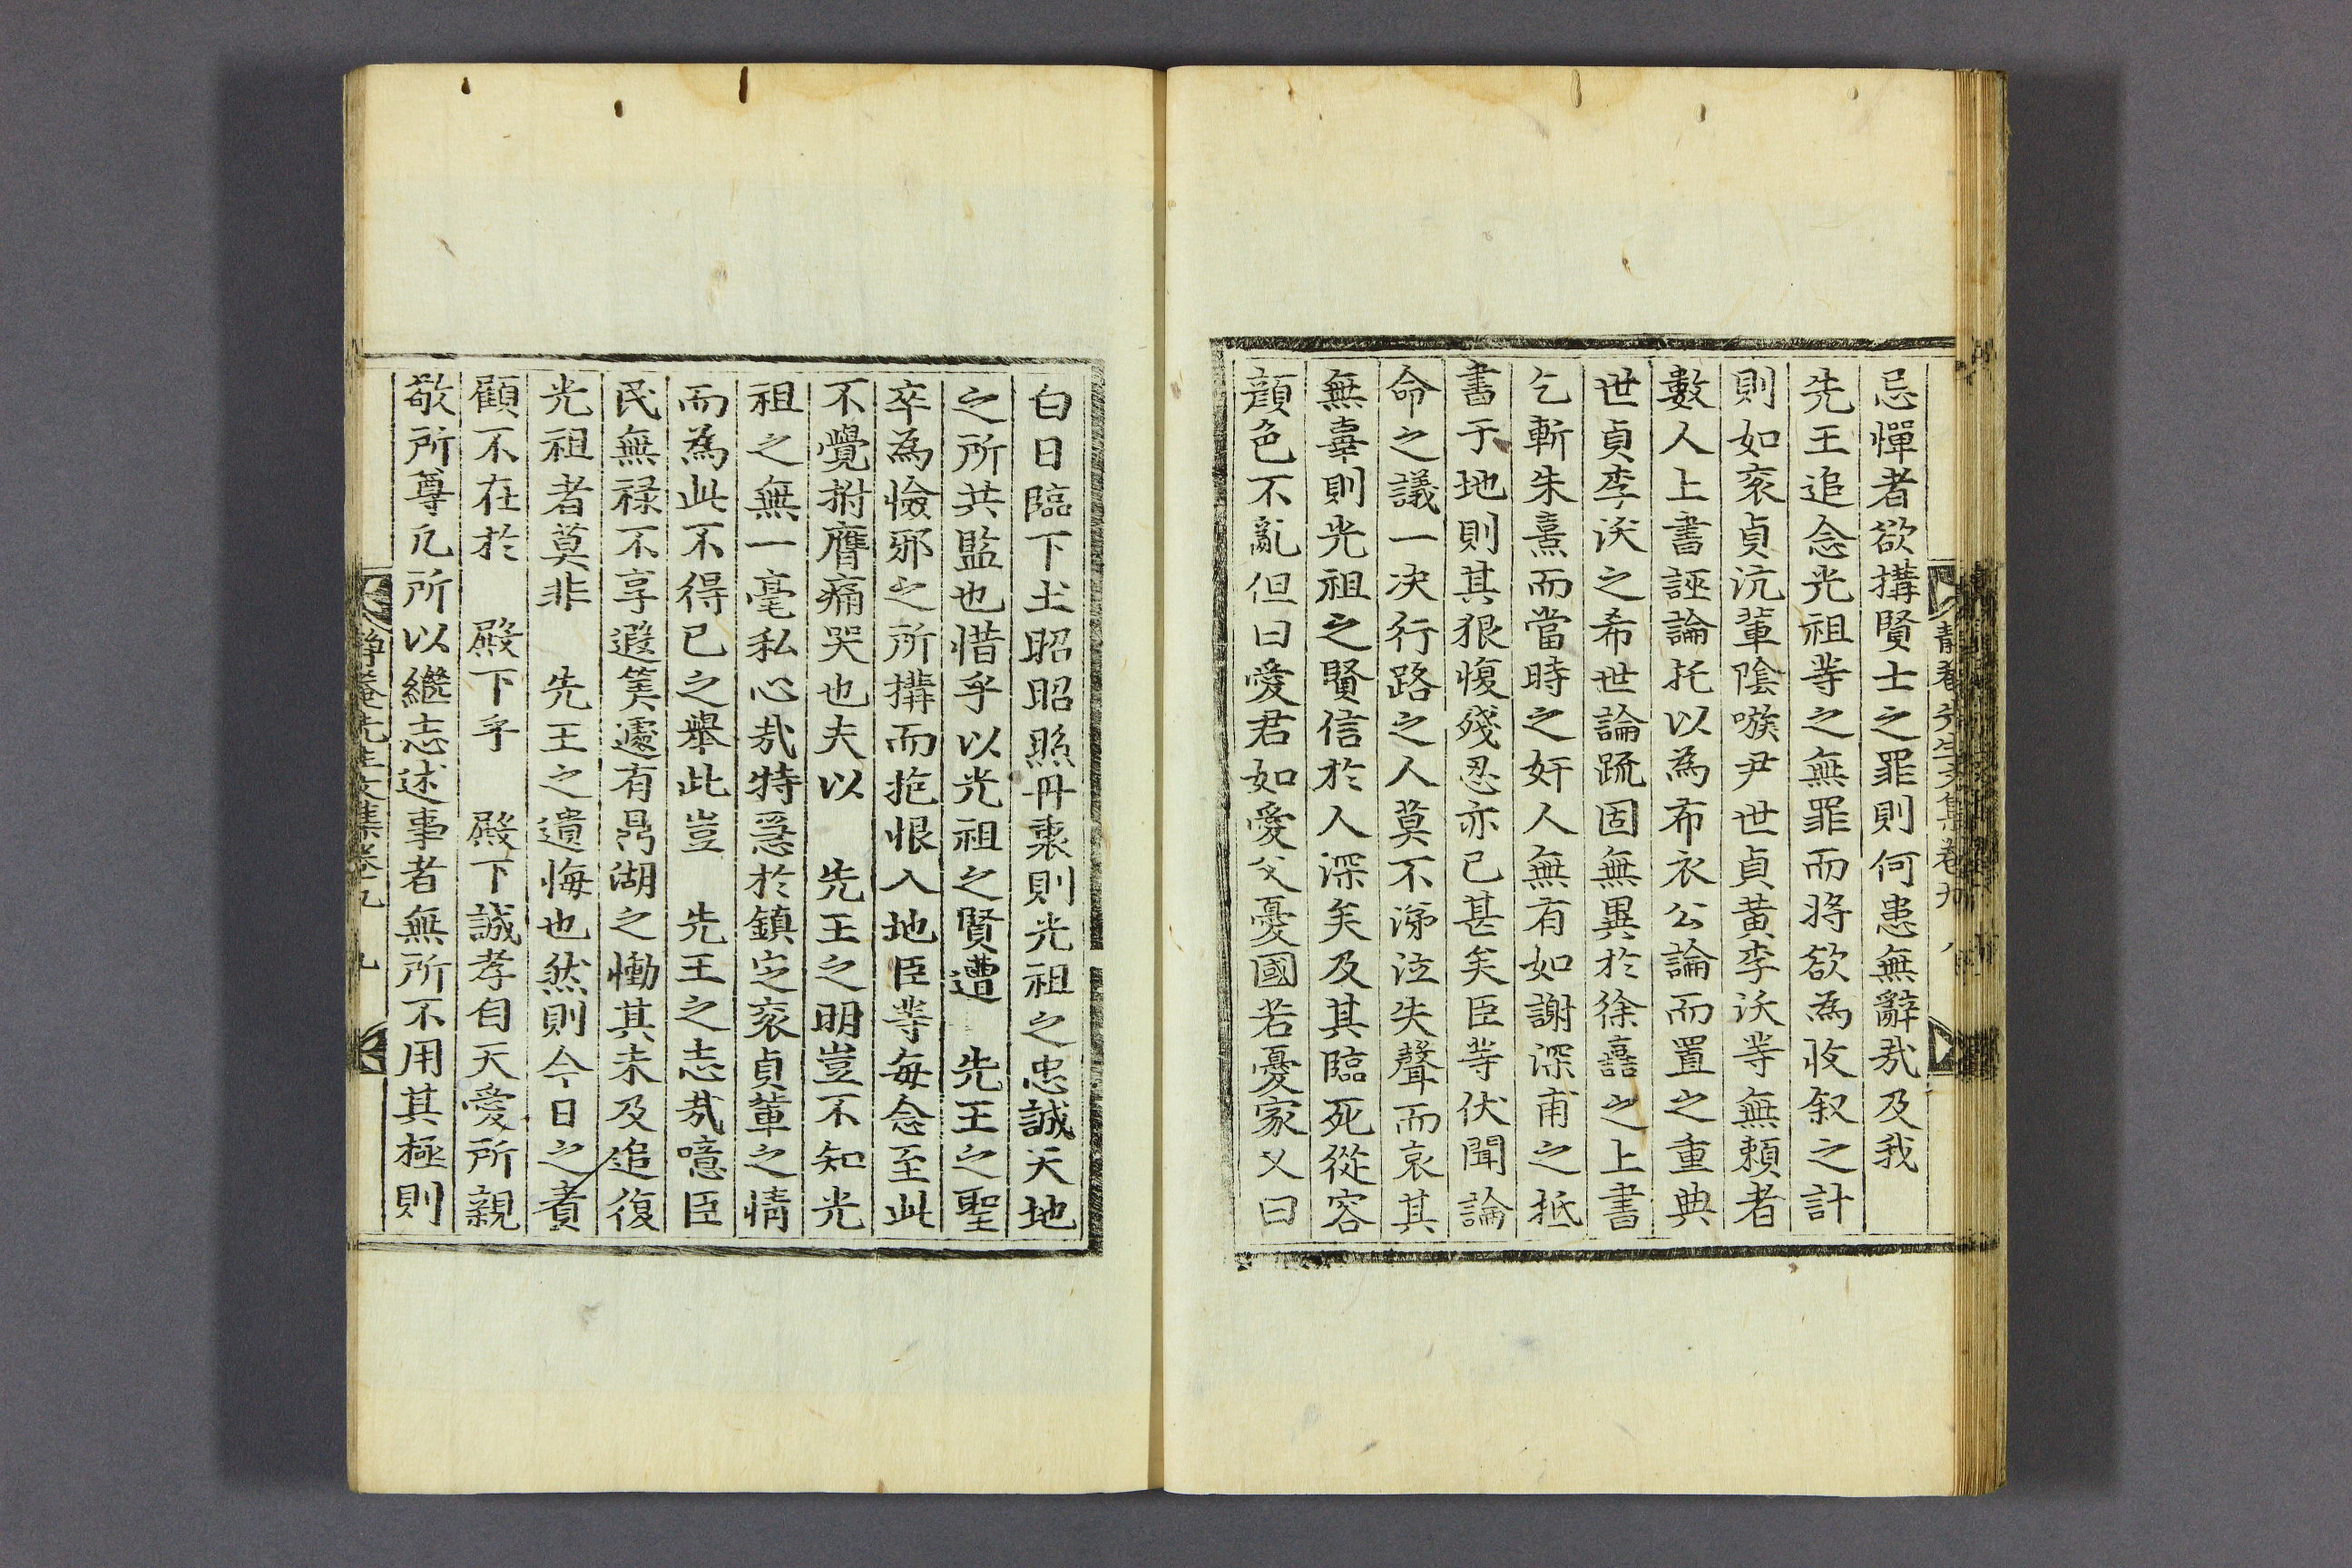 忌憚者欲搆賢士之罪則何患無辭㢤及我
先王追念光祖等之無罪而將欲為收叙之計
則如袞貞沆輩陰嗾尹世貞黄李沃等無賴者
數人上書誣論托以為布衣公論而置之重典
世貞李沃之希世論䟽固無異於徐囍之上書
乞斬朱熹而當時之奸人無有如謝深甫之抵
書于地則其狠愎殘忍亦已甚矣臣等伏聞論
命之議一决行路之人莫不涕泣失聲而哀其
無辜則光祖之賢信於人深矣及其臨死從容
顔色不亂但曰愛君如愛父憂國若憂家又曰
靜菴先生文集卷九 八
白日臨下土昭昭照丹衷則光祖之忠誠天地
之所共監也惜乎以光祖之賢遭 先王之聖
卒為憸邪之所搆而抱恨入地臣等每念至此
不覺拊膺痛哭也夫以 先王之明豈不知光
祖之無一毫私心㢤特急於鎮定袞貞輩之情
而為此不得已之舉此豈 先王之志㢤噫臣
民無祿不享遐筭遽有鼎湖之慟其未及追復
光祖者莫非 先王之遺悔也然則今日之責
顧不在於 殿下乎 殿下誠孝自天愛所親
敬所尊凡所以繼志述事者無所不用其極則
靜菴先生文集卷九 九